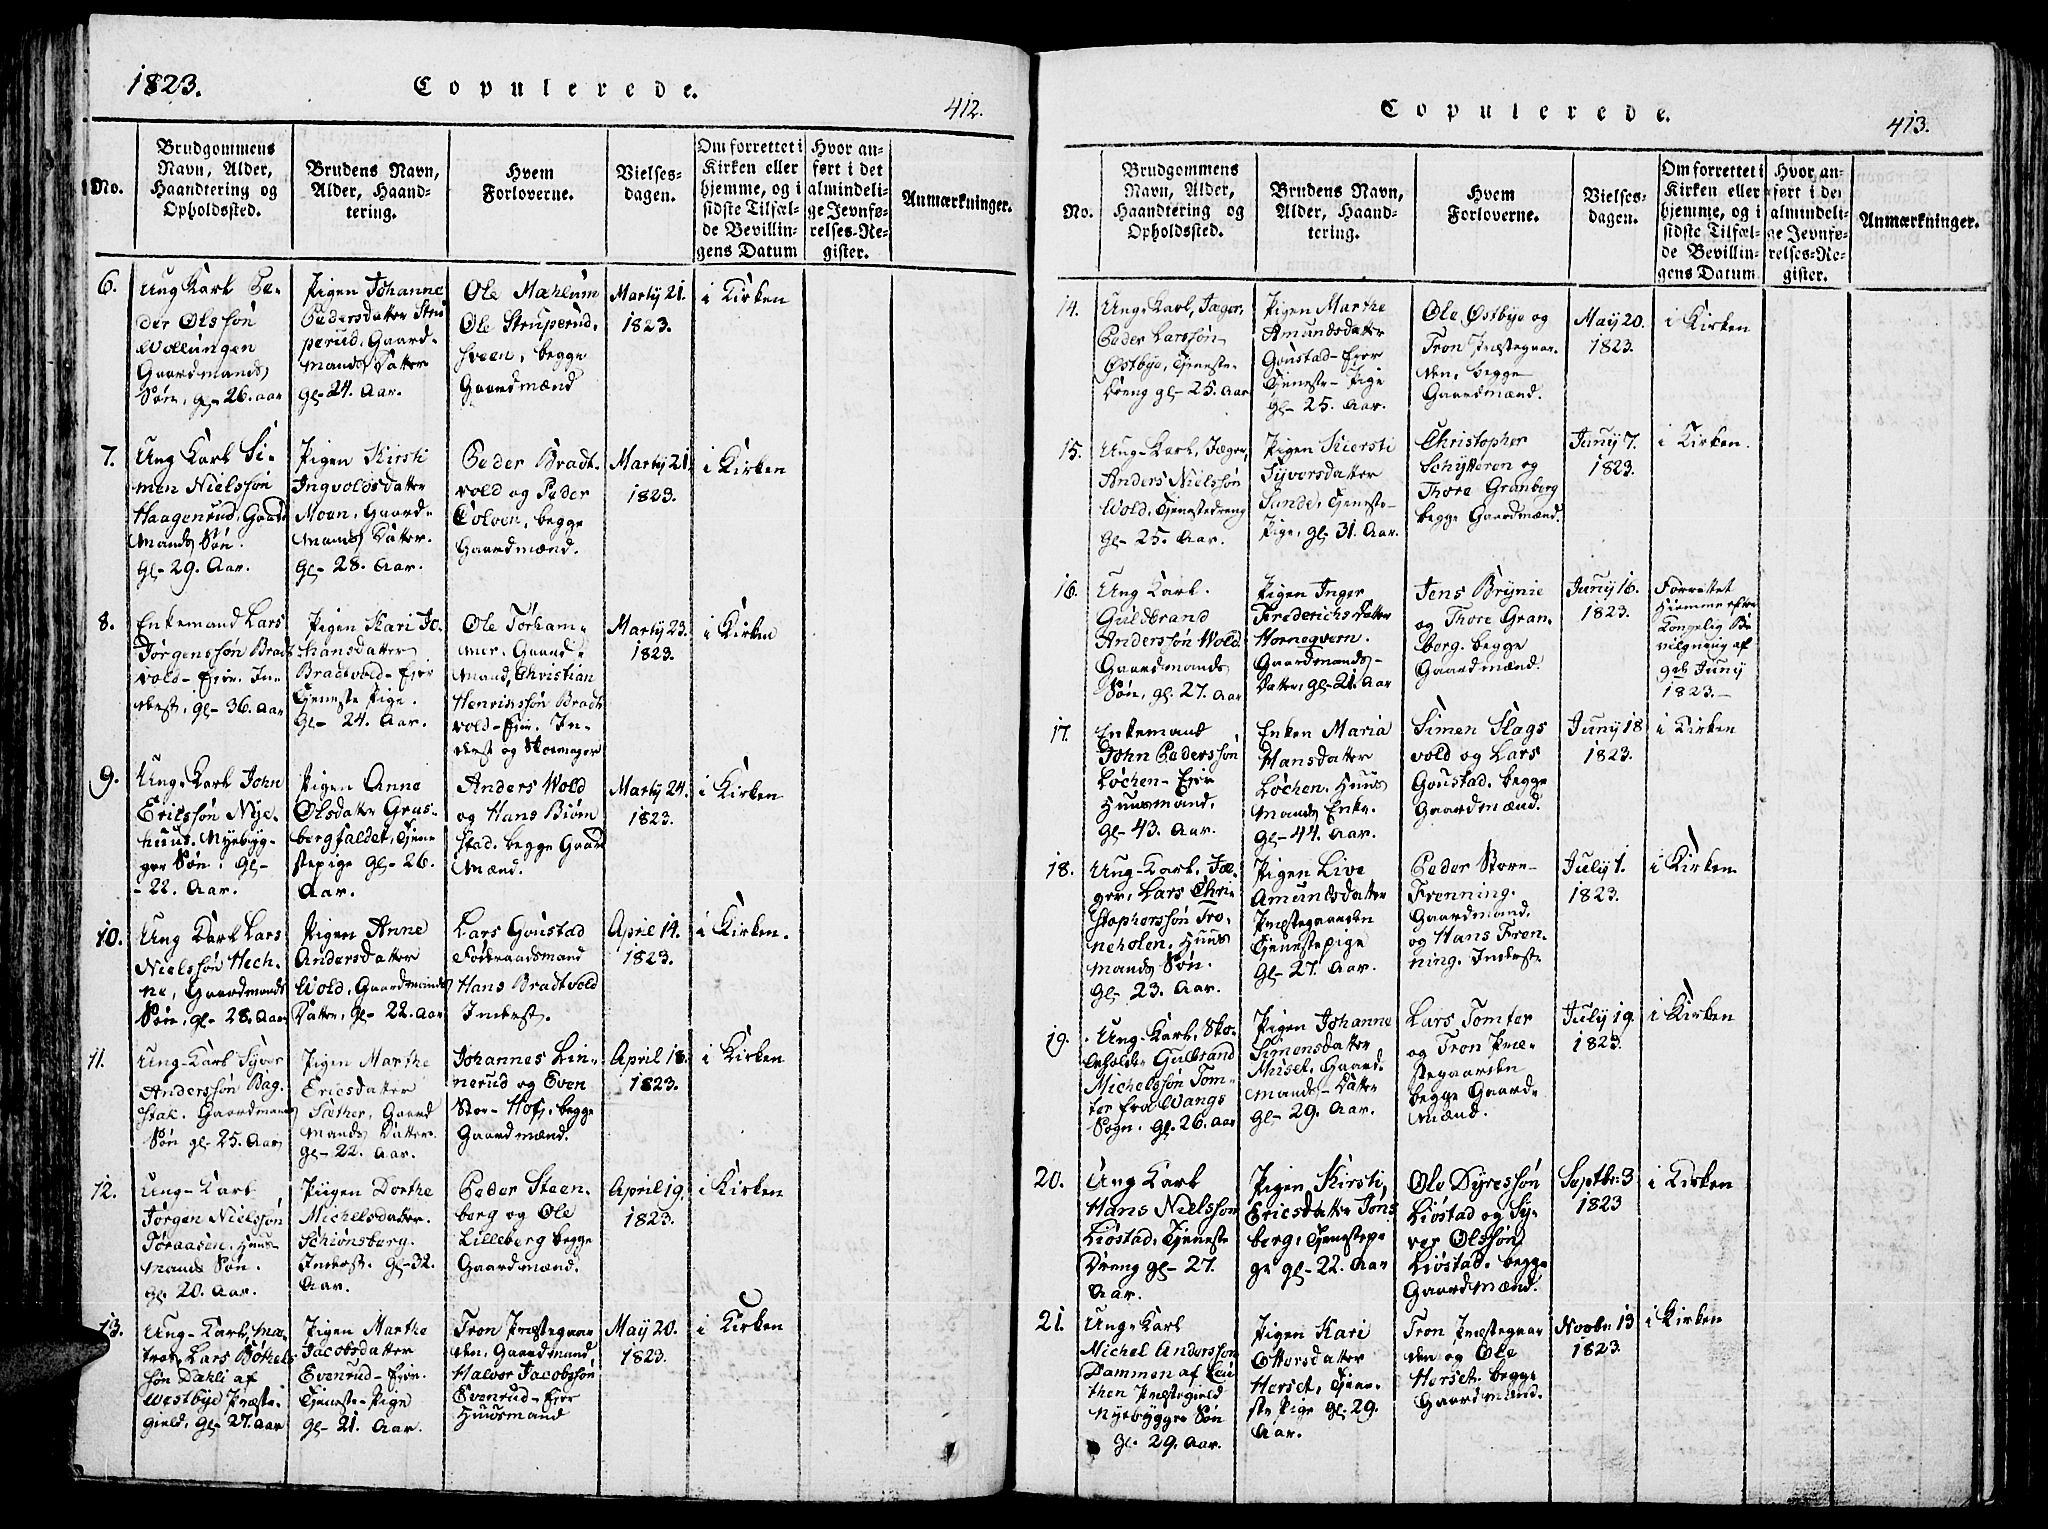 1823.
Copulerede.
412.
No.
Brudgommens
Navn, Alder,
Haandtering og
Opholdssted.
Brudens Navn,
Alder, Haand-
tering.
Hvem
Forloverne.
Vielses-
dagen.
Om forrettet i
Kirken eller
hjemme, og i
sidste Tilfæl-
de Bevillin-
gens Datum
Hvor an-
ført i det
almindeli-
ge Jevnfø-
relses-Re-
gister.
Anmærkninger.
6.
Ung Karl Pe-
der Olssøn
Wollungen
Gaardmands
Søn, gl- 26. aar
Pigen Johanne
Pedersdatter Stru
perud, Gaard-
mands Datter
gl- 24. Aar.
Ole Mæhlum
Ole Struperud-
sveen, begge
Gaardmænd
Marty 21.
1823.
i Kirken
7.
Ung Karl Si-
men Nielssøn
Haagenrud, Gaard
mands Søn.
gl- 29. Aar.
Pigen Kirsti
Ingvoldsdatter
Moen, Gaard-
mands Datter.
Gl- 28. Aar.
Peder Bradt-
vold og Peder
Tolven, begge
Gaardmænd.
Marty 21.
1823.
i Kirken
8.
Enkemand Lars
Jørgenssøn Bradt
vold-Eier. In-
derst, gl- 36. Aar
Pigen Kari Jo-
hansdatter
Bradtvold-Eier
Tjeneste Pige.
Gl- 24. Aar.
Ole Torham-
mer, Gaard-
mand, Christian
Henrikssøn Bradt
vold-Eier. In-
derst og Skomager
Marty 23.
1823.
i Kirken
9.
Ung-Karl John
Erikssøn Nye-
huus. Nyebyg-
ger Søn. Gl-
- 22. Aar.
Pigen Anne
Olsdatter Gras-
bergfaldet, Tjene
stepige Gl- 26.
Aar.
Anders Wold
og Hans Biørn
stad. begge Gaard
mænd.
Marty 24.
1823.
i Kirken
10.
Ung Karl Lars
Nielssøn Hech-
ne, Gaardmands
Søn, gl- 28. Aar
Pigen Anne
Andersdatter
Wold, Gaardmands
Datter, gl- 22. aar
Lars Goustad
Føderaadsmand
Hans Bradtvold
Inderst.
April 14.
1823.
i Kirken.
11.
Ung-Karl Syver
Anderssøn Bag-
stak. Gaardmands
Søn gl- 25. Aar
Pigen Marthe
Ericsdatter
Sæther, Gaard
mands Datter.
gl- 22. Aar.
Johannes Lin-
nerud og Even
Stor-Hof, begge
Gaardmænd.
April 18.
1823.
i Kirken
12.
Ung-Karl
Jørgen Nielssøn
Toraasen. Huus-
mands Søn.
gl. 20. Aar.
Piigen Dorthe
Michelsdatter.
Schiønsberg.
Inderst. gl- 32.
Aar.
Peder Steen-
berg og Ole
Lilleberg begge
Gaardmænd.
April 19.
1823.
i Kirken
13.
Ung-Karl, Ma-
tros, Lars Bottels
søn Dahli af
Westbye Præste-
gield, gl- 27. Aar
Pigen Marthe
Jacobsdatter
Evenrud-Eier.
Tjeneste-Pige
gl- 21. Aar.
Tron Præstegaar
den, Gaardmand
Halvor Jacobssøn
Evenrud-Eier
Huusmand
May 20.
1823.
i Kirken
Copulerede.
413.
No.
Brudgommens
Navn, Alder,
Haandtering og
Opholdssted.
Brudens Navn,
Alder, Haand-
tering.
Hvem
Forloverne.
Vielses-
dagen.
Om forrettet i
Kirken eller
hjemme, og i
sidste Tilfæl-
de Bevillin-
gens Datum
Hvor an-
ført i det
almindeli-
ge Jevnfø-
relses-Re-
gister.
Anmærkninger.
14.
Ung-Karl, Jæger,
Peder Larssøn
Østbye, Tjeneste-
dreng gl- 25. Aar
Pigen Marthe
Amundsdatter
Goustad-Eier
Tjeneste-Pige
gl- 25. Aar.
Ole Østbye og
Tron Præstegaar-
den, begge
Gaardmænd.
May 20.
1823.
i Kirken
15.
Ung-Karl, Jæger,
Anders Nielssøn
Wold, Tjenestedreng
gl- 25. Aar.
Pigen Kiersti
Syversdatter
Sunde, Tjeneste-
Pige, gl- 31. Aar.
Christopher
Schytteren og
Thore Granberg
begge Gaardmænd.
Juny 7.
1823.
i Kirken.
16.
Ung Karl.
Guldbrand
Anderssøn Wold
Gaardmands
Søn, gl. 27. Aar
Pigen Inger
Frederichsdatter
Hornegvern.
Gaardmands-
Datter, gl- 21. Aar
Jens Brynie
og Thore Gran-
berg. begge
Gaardmænd.
Juny 16.
1823.
Forrettet
Hiemme efter
Kongelig Be
vilgning af
9de Juny
1823.-
17.
Enkemand
John Pederssøn
Løchen-Eier
Huusmand.
gl- 43. Aar.
Enken Maria
Hansdatter
Løchen. Huus
mands Enke.
Gl- 44. Aar.
Simen Slags
vold og Lars
Goustad. begge
Gaardmænd.
Juny 18
1823.
i Kirken
18.
Ung-Karl. Jæ-
ger, Lars Chri-
stopherssøn Tro-
neholen. Huus
mands Søn.
Gl- 23. Aar.
Pigen Live
Amundsdatter
Præstegaarden
Tjenestepige
Gl- 27. Aar.
Peder Store-
Frenning.
Gaardmand.
og Hans Fren-
ning. Inderst
July 1.
1823.
i Kirken
19.
Ung-Karl, Sko-
leholder Gulbrand
Michelssøn Tom-
ter fra Wangs
Sogn. Gl- 26. aar
Pigen Johanne
Simensdatter
Muset, Gaard-
mands-Datter
gl- 29. Aar.
Lars Tomter
og Tron Præ-
stegaarden
begge Gaard-
mænd.
July 19
1823.
i Kirken
20.
Ung Karl
Hans Nielssøn
Liøstad, Tjeneste
Dreng gl- 27.
Aar.
Pigen Kirsti
Ericsdatter Jons
berg, Tjenestepi
ge gl- 22. Aar
Ole Dyressøn
Liøstad og Sy-
ver Olssøn
Liøstad. begge
Gaardmænd.
Septbr 3
1823
i Kirken
21.
Ung-Karl
Michel Anderssøn
Dammen af Leu
then Præstegield
Nyebygger Søn
gl- 29. Aar.
Pigen Kari
Ottersdatter
Herset, Tjene-
ste Pige gl. 29.
Aar.
Tron Præstegaar
den og Ole
Herset. begge
Gaardmænd.
Novbr 13
1823.
i Kirken